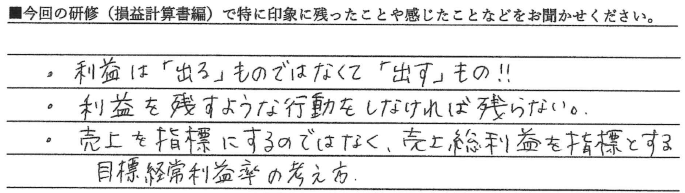 ■今回の研修（損益計算書編）で特に印象に残ったことや感じたことなどをお聞かせください。
・利益は「出る」ものではなくて「出す」もの!!
・利益を残すような行動をしなければ残らない。
・売上を指標にするのではなく、売上総利益を指標とする
目標経常利益率の考え方.